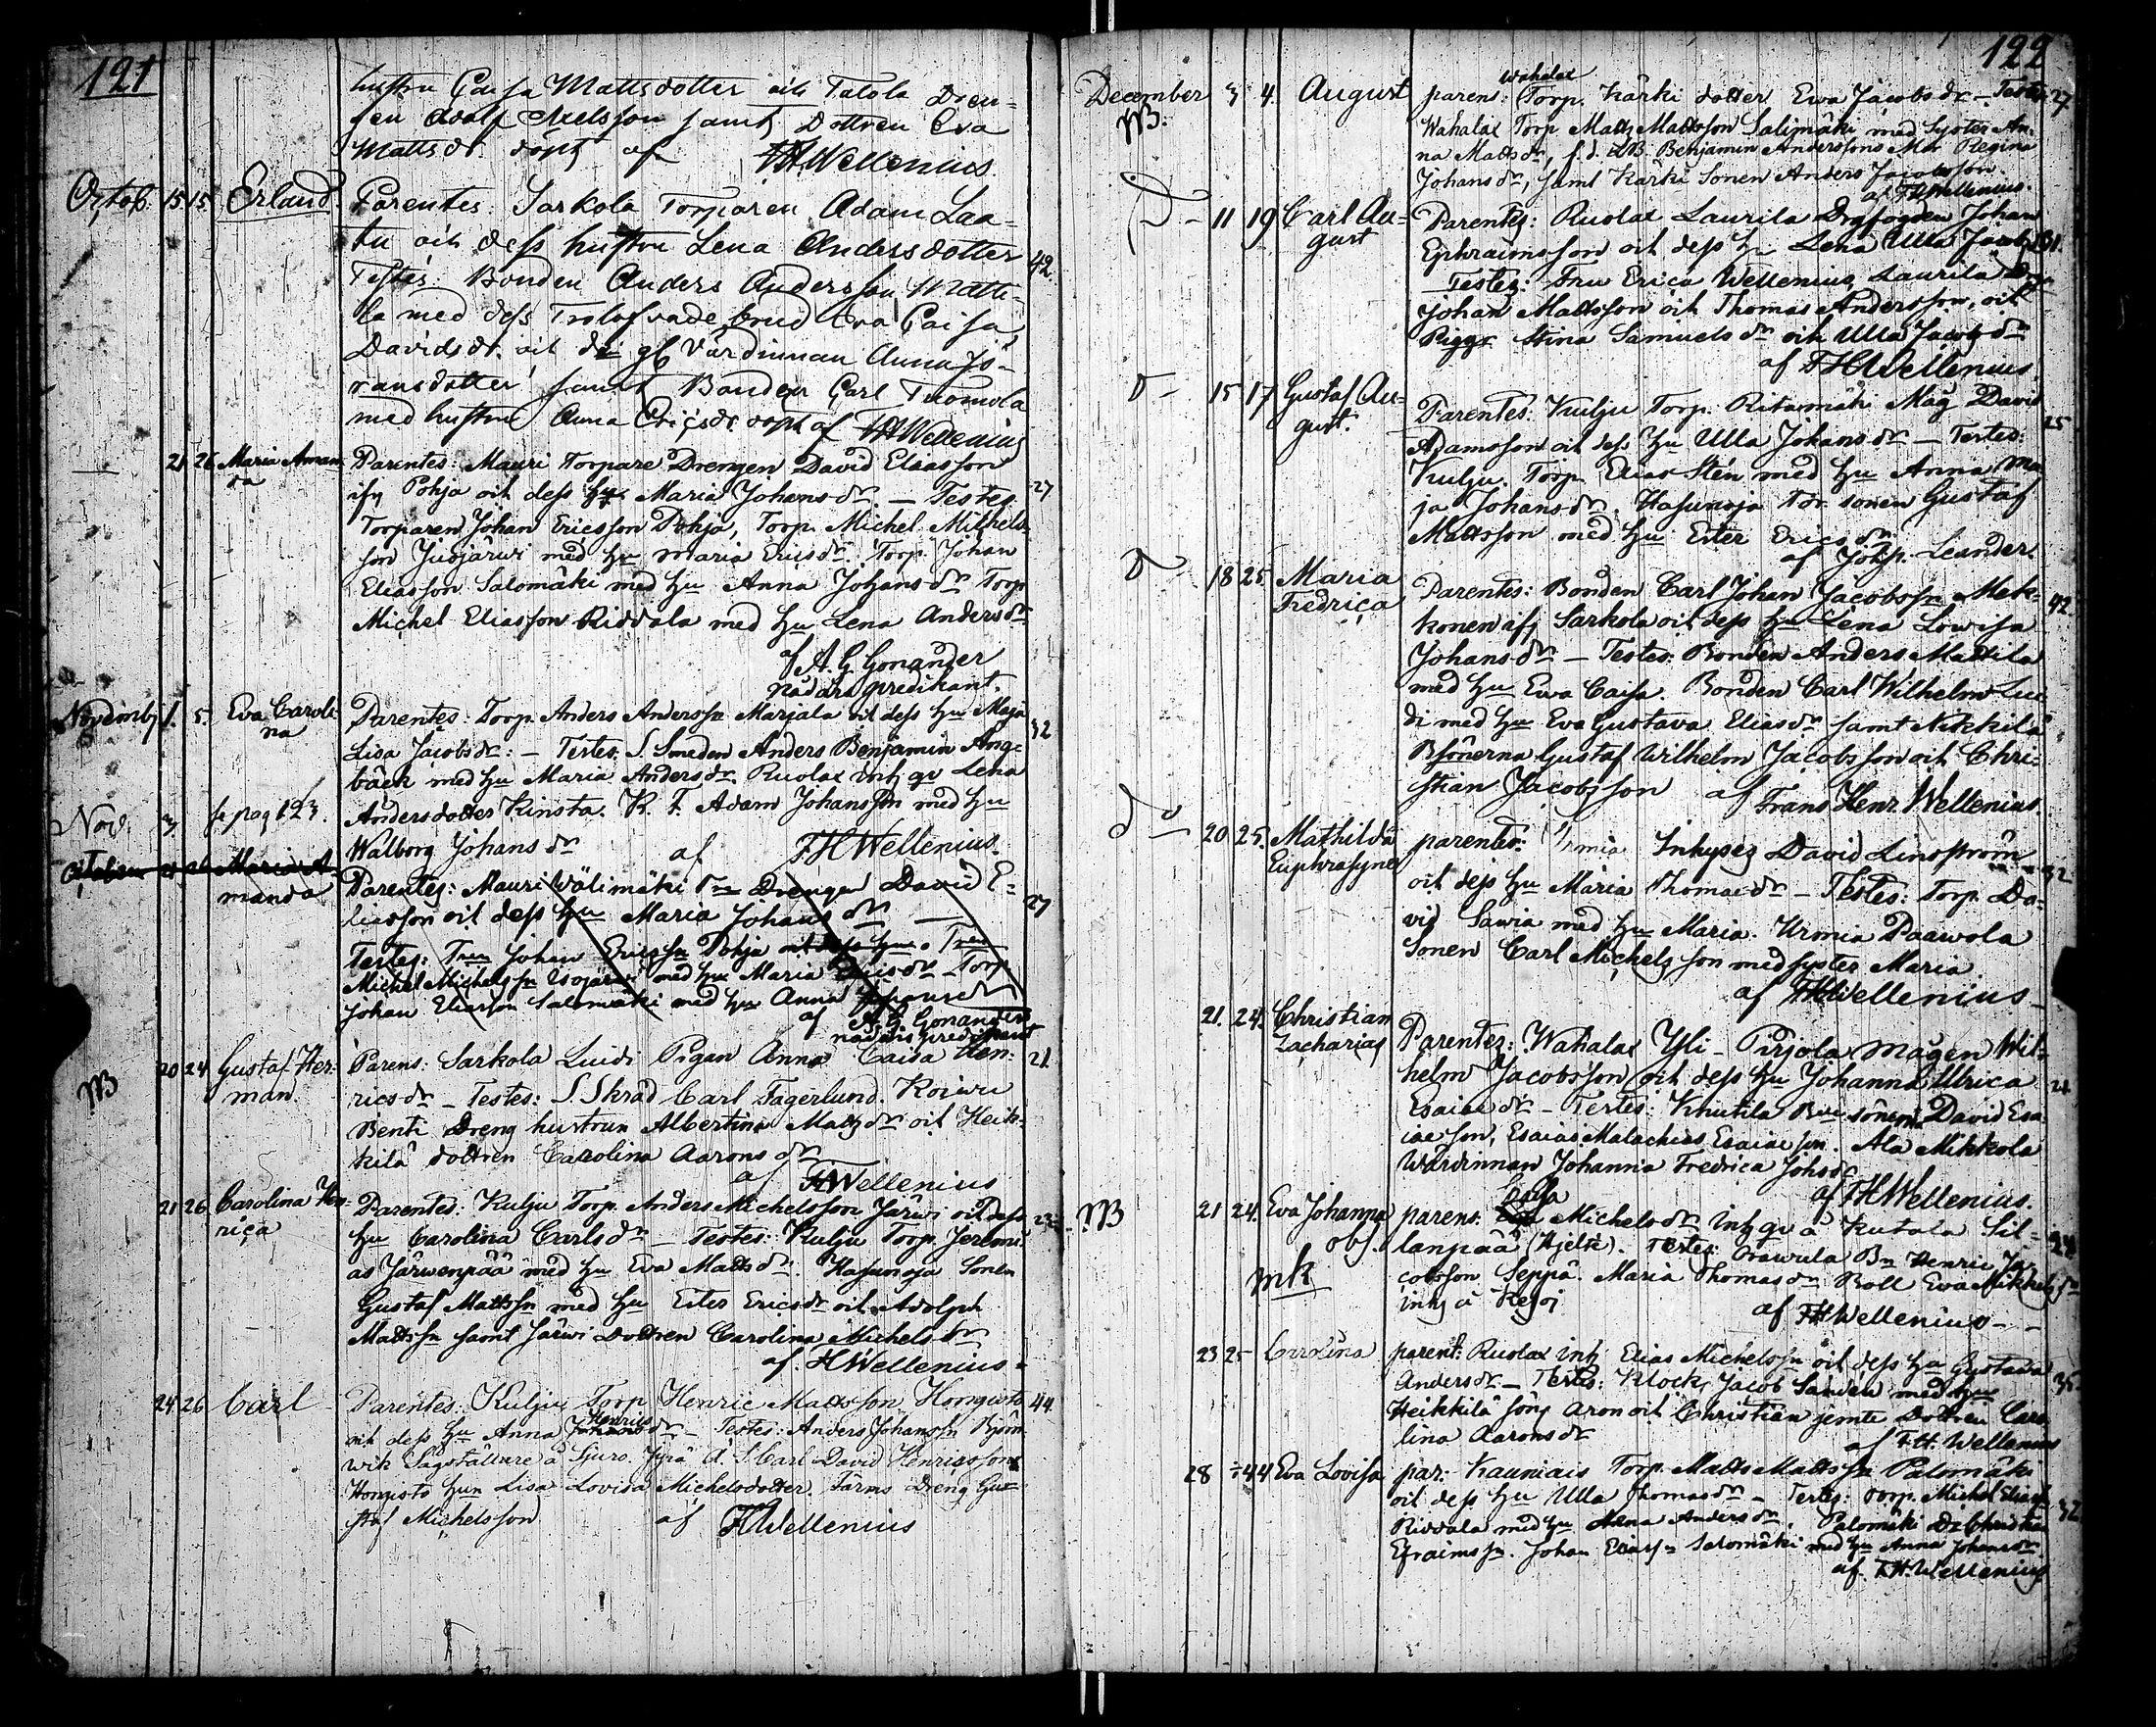 121
hustru Caisa Mattsdotter och Talola Dren-
gen Adolf Nielsson samt Dottren Eva
Mattsdr. döpt af FHWellenius.
Octob. 15 15 Erland. Parentes: Sarkola Torparen Adam Laa-
tu och dess hustru Lena Andersdotter 42.
Testes: Bonden Anders Andersson Matti-
la med dess Trolofvade brud Eva Caisa
Davidsdr. och gl Värdinnan Anna Jö-
ransdotter samt Bonden Carl Tuomola
med hustru Anna Ericsdr. döpt af FHWellenius
— 21 26 Maria Aman- Parentes: Mauri Torpare Drengen David Eliasson
da ifr Pohja och dess hu Maria Johansdr — Testes 27
Torparen Johan Ericsson Pohja, Torp. Michel Michels-
son Isojärwi med hu Maria Ericsdr. Torp. Johan
Eliasson Salomäki med hu Anna Johansdr Torp
Michel Eliasson Riddala med hu Lena Andersdr
af A. G. Gonander
nådårs predikant.
Novemb 1. 5. Eva Caroli- Parentes: Torp. Anders Anderssn Marjala och dess hu Maja 32
na Lisa Jacobsdr: — Testes S. Smeden Anders Benjamin Ång-
bäck med hu Maria Andersdr Ruolax inh qv Lena
Nov. 3 se pag 123. Andersdotter Kinsta. K. F. Adam Johansson med hu
Walborg Johansdr af FHWellenius.
October 21 26 Maria A- Parentes: Mauri Wälimäki Drengen David E- 27
manda liasson och dess hu Maria Johansdr —
Testes: Johan Ericssn Pohja och dess hu.
Michel Michelssn Isojärwi med hu Maria Ericsdr - Torp
Johan Eliasson Salomäki med hu Anna
af A. G. Gonander
nådårs predikant
NB 20 24 Gustaf Her- Parens: Sarkola Luidi Pigan Anna Caisa Hen- 21.
man. ricsdr - Testes: S. Skräd Carl Fagerlund. Koiwu
Benti Dreng hustrun Albertina Mattsdr och Heik-
kilä dottren Carolina Aaronsdr
af FHWellenius
21 26 Carolina Hen- Parentes: Kulju Torp. Anders Michelsson Järwi och dess 23
rica hu Carolina Carlsdr — Testes: Kulju Torp. Jeremi-
as Järwenpää med hu Eva Mattsdr. Hasunoja Sonen
Gustaf Mattssn med hu Ester Ericsdr och Adolph
Mattssn samt Järwi Dottren Carolina Michelsdr
af. FHWellenius.
24 26 Carl Parentes: Kulju Torp Henric Mattsson Hongisto 44
och dess hu Anna Henricsdr — Testes: Anders Johanssn Björn-
wik Sågställare å Sjuro. S. Carl David Henricsson
Hongisto hun Lisa Lovisa Michelsdotter, Färms Dreng Gu-
staf Michelsson af FHWellenius
122
December 3 4. August parens: Wahalax Torp. Kärki dotter Ewa Jacobsdr - Testes 27
NB. Wahalax Torp Matts Mattsson Salimäki med Syster An-
na Mattsdr, f. d. Benjamin Anderssons Mor Regina
Johansdr, samt Kärki Sonen Anders Jacobsson.
af FHWellenius.
D - 11 19 Carl Au- Parentes: Ruolax Laurila Drgfogden Johan
gust Ephraimsson och dess hu Lena Ulla Jacobsdr 31.
Testes: Fru Erica Wellenius, Laurila Drg
Johan Mattsson och Thomas Andersson, och
Pigor Stina Samuelsdr och Ulla Jacobsdr
af FHWellenius
D - 15 17 Gustaf Au- Parentes: Kulju Torp. Ritamäki Måg David 25
gust. Adamsson och dess hu Ulla Johansdr — Testes:
Kulju. Torp Elias Stén med hu Anna Ma-
ja Johansdr. Hasunoja Tor. sonen Gustaf
Mattsson med hu Ester Ericsdr
af Johsp. Leander.
D - 18 25 Maria Parentes: Bonden Carl Johan Jacobssn Mek- 42
Fredrica konen ifr Sarkola och dess hu Lena Lowisa
Johansdr — Testes: Bonden Anders Mattila
med hu Ewa Caisa. Bonden Carl Wilhelm Lui-
di med hu Eva Gustava Eliasdr samt Nikkilä
Bsönerna Gustaf Wilhelm Jacobsson och Chri-
stian Jacobsson af Frans Henr. Wellenius.
do 20 25. Mathilda parentes: Inhyses David Lindström
Euphrosyne och dess hu Maria Thomasdr — Testes: Torp. Da- 32
vid Sawia med hu Maria. Urmia Paawola
Sonen Carl Michelsson med syster Maria.
af FHWellenius
21. 24. Christian Parentes: Wahalax Yli-Pirjola Mågen Wil-
Zacharias helm Jacobsson och dess hu Johanna Ulrica 21
Esaiaedr - Testes: Knutila Sönerna David Esa-
iaeson, Esaias Malachias Esaiaeson. Ala Mikkola
Wärdinnan Johanna Fredrica Johsdr
af FHWellenius.
NB 21 24. Eva Johanna parens: Caisa Michelsdr inh qv å Kutala Sil- 24
obs. lanpää (Hjelte). Testes: Orawala Bn Henric Ja-
mk cobsson Seppä. Maria Thomasdr Boll Eva Mikkelsdr
inh å Kesoj af FHWellenius
23 25 Carolina parent: Ruolax inh Elias Michelssn och dess hu Gustava
Andersdr - Testes: Klock. Jacob Sanden med hu 35
Heikkilä söns Aron och Christian jemte Dottren Caro-
lina Aaronsdr af F.H. Wellenius
28 Eva Lovisa par: Kauniais Torp. Matts Mattssn Palomäki
och dess hu Ulla Thomasdr — Testes: Torp. Michel Eliasn 32
Riddala med hu Lena Andersdr. Palomäki Dr Christian
Efraimssn. Johan Eliassn Salomäki med hu Anna Johansdr
af. F.H. Wellenius